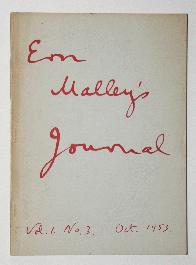 Ern
Malley's
Journal
Vol. 1. No. 3. Oct. 1953.